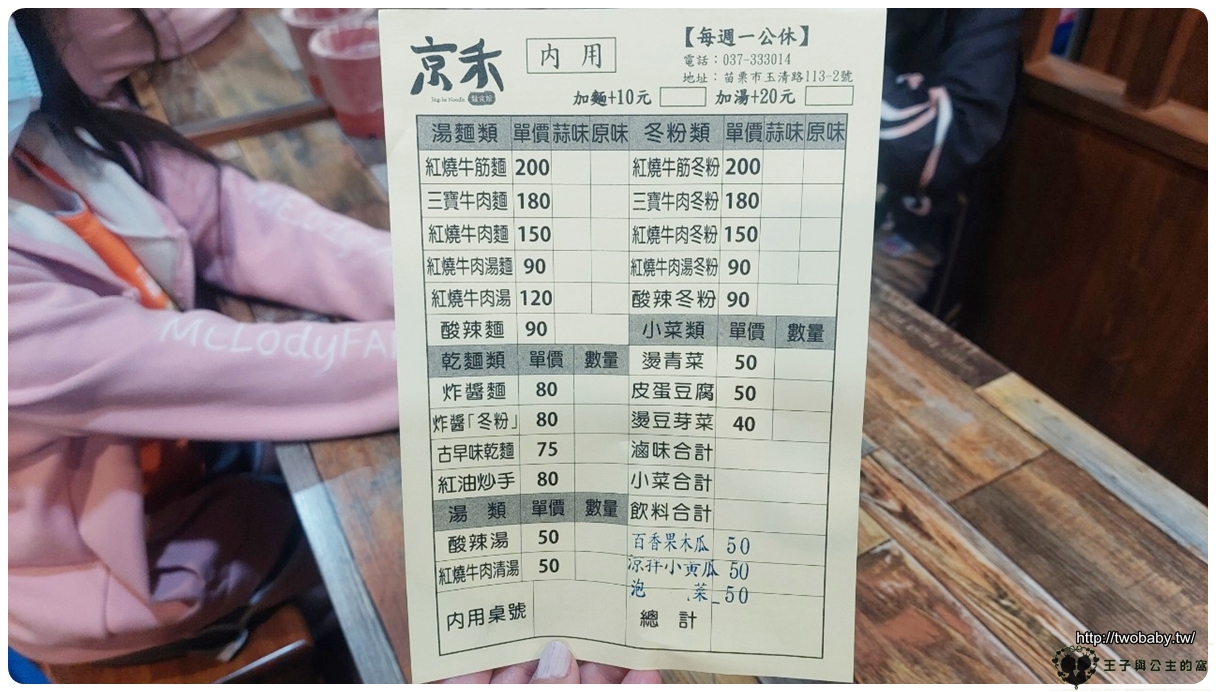 京禾
內 用
【每週一公休】
電話：037-333014
地址：苗栗市玉清路113-2號
加麵+10元 加湯+20元
湯麵類 單價 蒜味 原味
紅燒牛筋麵 200
三寶牛肉麵 180
紅燒牛肉麵 150
紅燒牛肉湯麵 90
紅燒牛肉湯 120
酸辣麵 90
乾麵類 單價 數量
炸醬麵 80
炸醬「冬粉」 80
古早味乾麵 75
紅油炒手 80
湯 類 單價 數量
酸辣湯 50
紅燒牛肉清湯 50
內用桌號
冬粉類 單價 蒜味 原味
紅燒牛筋冬粉 200
三寶牛肉冬粉 180
紅燒牛肉冬粉 150
紅燒牛肉湯冬粉 90
酸辣冬粉 90
小菜類 單價 數量
燙青菜 50
皮蛋豆腐 50
燙豆芽菜 40
滷味合計
小菜合計
飲料合計
百香果木瓜 50
涼拌小黃瓜 50
泡 菜 50
總 計
MeLodyFA
http://twobaby.tw/
王子與公主的窩